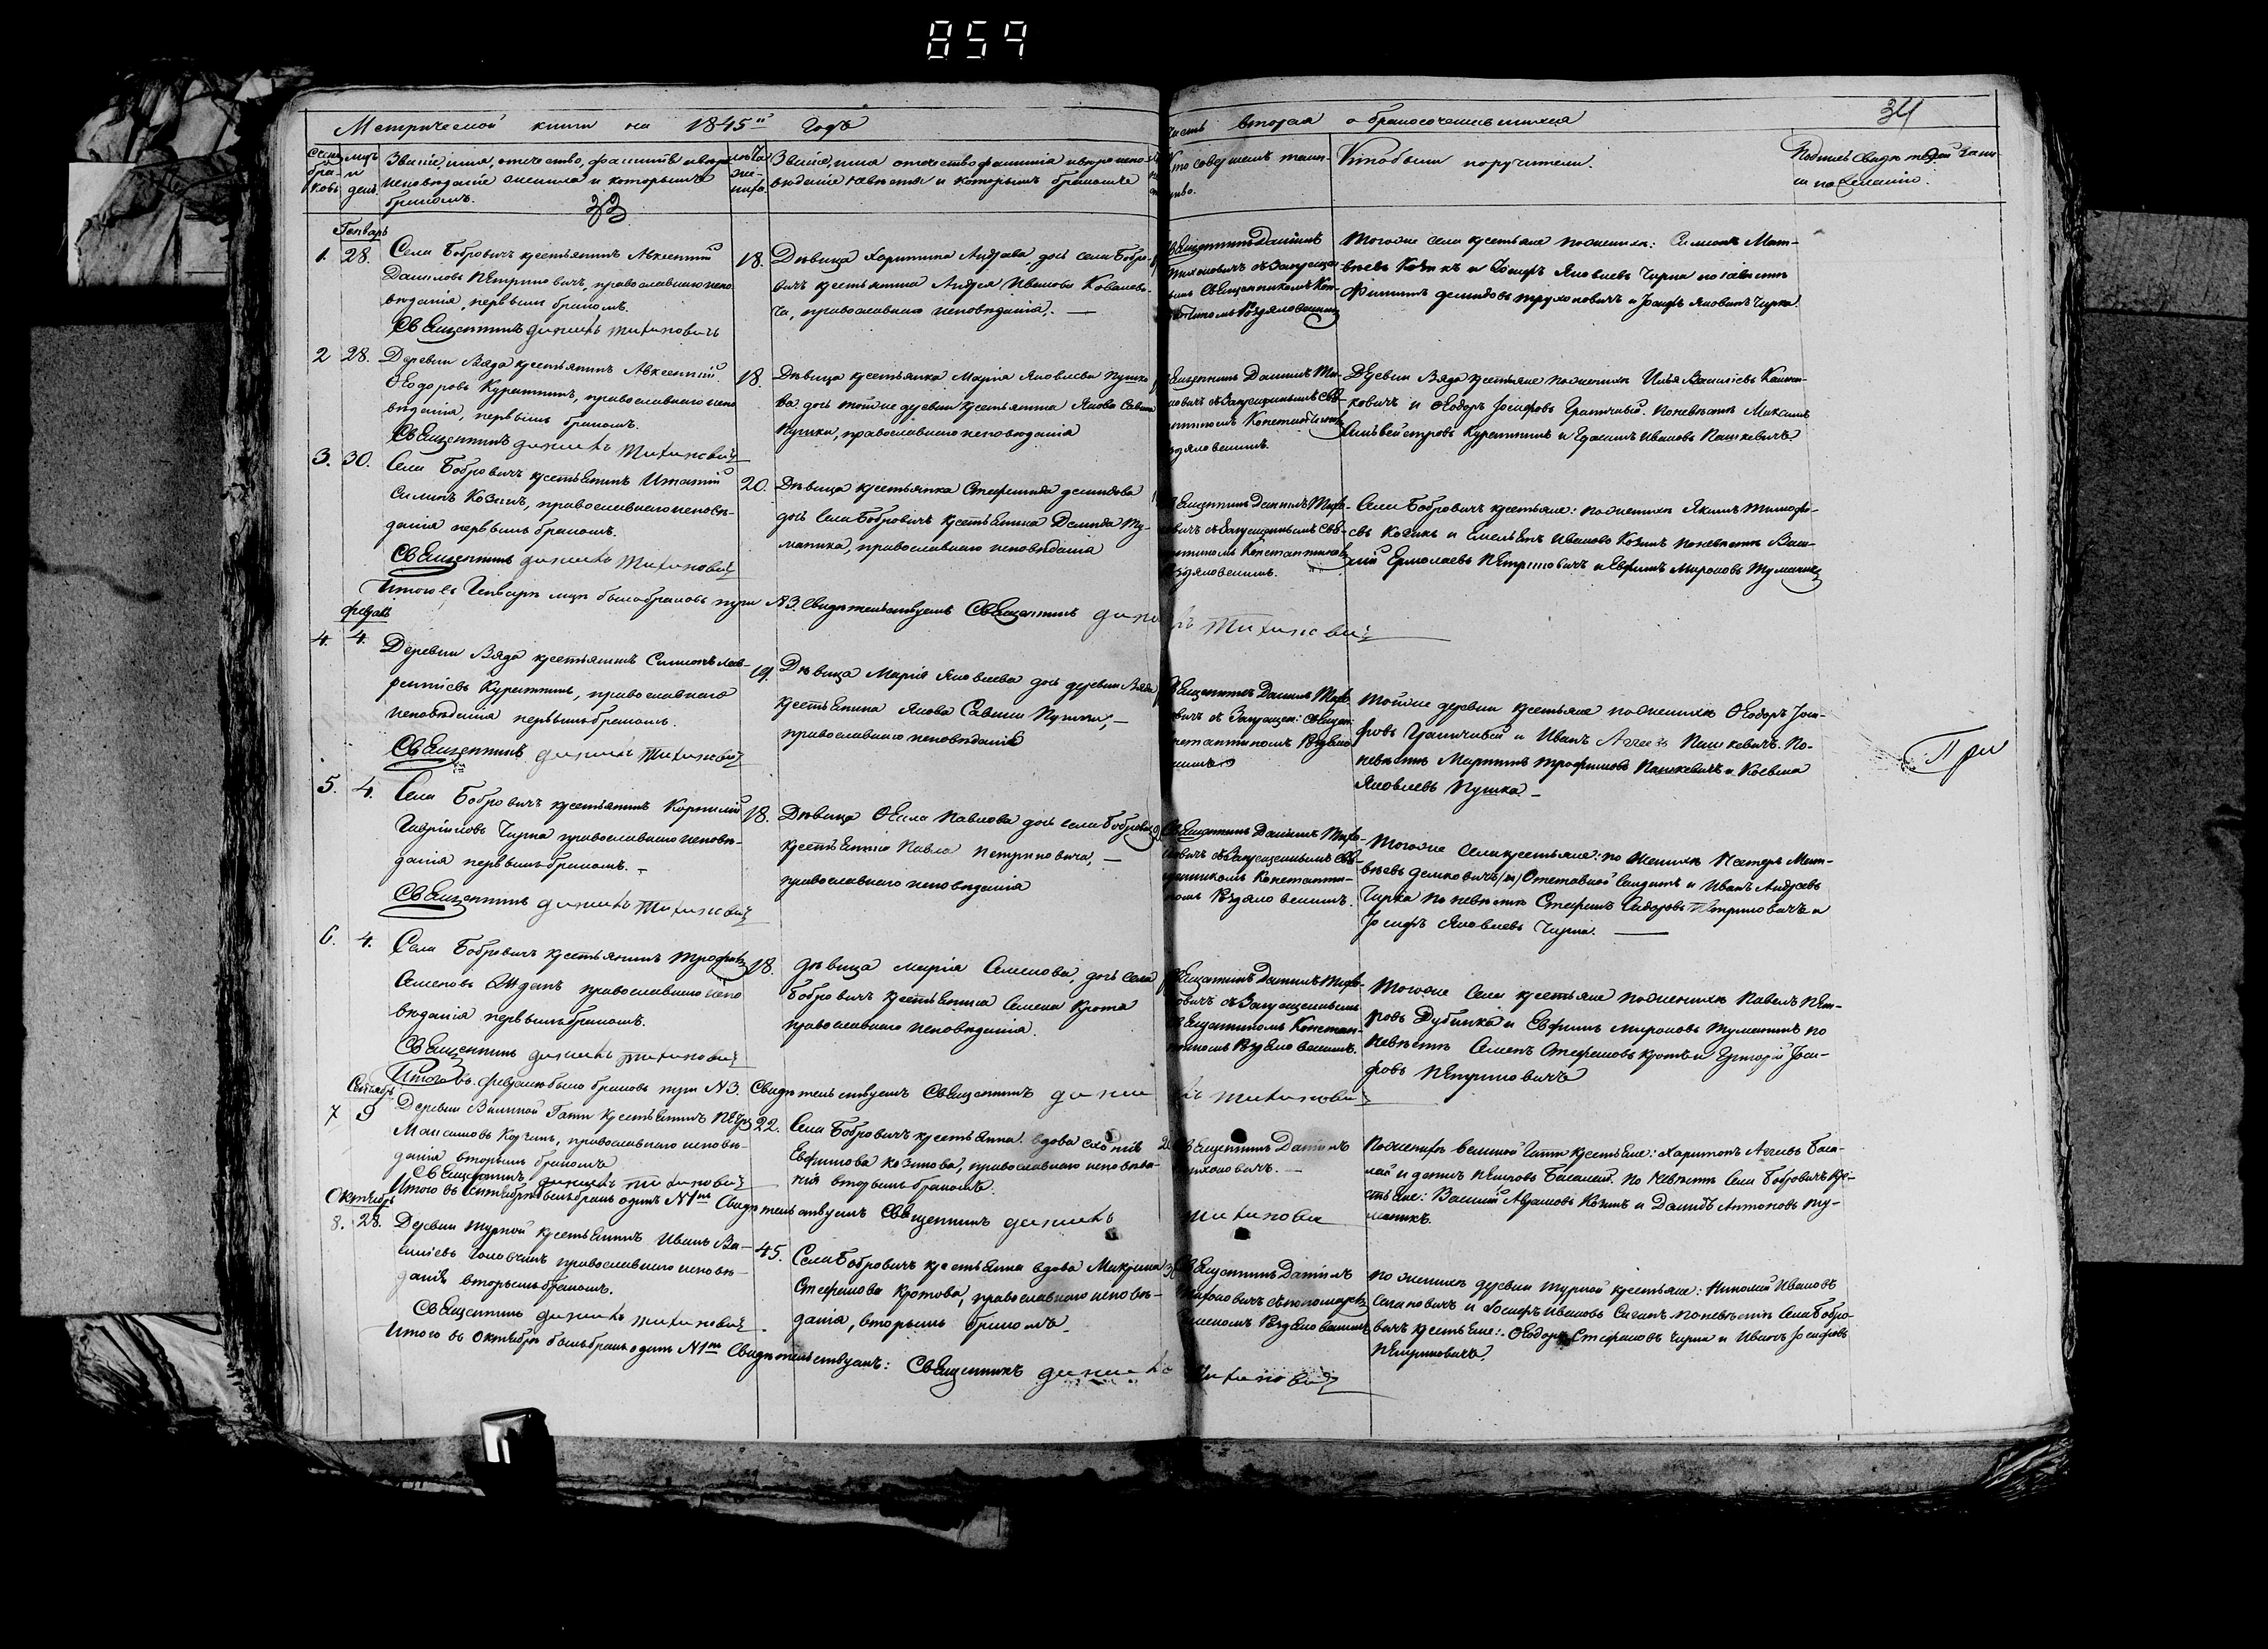 859
Метрической книги на 1845й годъ
часть вторая о бракосочетавшихся
34
Счетъ браковъ
мцъ и день
Званіе, имя, отечество, фамилія и вѣро
исповѣданіе жениха и которымъ
бракомъ.
33
лѣта жениха
Званіе, имя отечество фамилія и вѣроиспо
вѣданіе невѣсты и которымъ бракомъ
Кто совершалъ таин-
ство.
Кто были поручители.
Подпись свидѣтелей запи-
си по желанію.
Генварь
1. 28.
Села Бобровичъ крестьянинъ Авксентій
Даниловъ Петриковичъ, православнаго испо
вѣданія, первымъ бракомъ.
Священникъ Даниилъ Тихоновичъ
18.
Дѣвица Харитина Андреева, дочь села Бобро-
вичъ крестьянина Андрея Иванова Ковалеви-
ча, православнаго исповѣданія. —
Священникъ Даніилъ
Тихоновичъ съ запрещен
нымъ Священникомъ Кон-
стантиномъ Роздяловскимъ
Тогоже села крестьяне по женихѣ: Симеонъ Мат-
вѣевъ Козикъ и Іосифъ Яковлевъ Чирка по невѣстѣ
Филипъ Демидовъ Трухоновичъ и Іосифъ Яковлевъ Чирка.
2 28.
Деревни Вяда крестьянинъ Авксентій
Ѳеодоровъ Куратникъ, православнаго испо
вѣданія, первымъ бракомъ.
Священникъ Даниилъ Тихоновичъ
18.
Дѣвица крестьянка Марія Яковлева Пушко
ва дочь тойже деревни крестьянина Якова Савина
Пушки, православнаго исповѣданія
Священникъ Даніилъ Ти-
хоновичъ съ запрещеннымъ Свя-
щенникомъ Константиномъ
Роздяловскимъ.
Деревни Вяда крестьяне по женихѣ Илья Василіевъ
и Ѳеодоръ Іосифовъ Граничный. По невѣстѣ Максимъ
Сильвестровъ Куратникъ и Герасимъ Ивановъ Пашкевичъ
3. 30.
Села Бобровичъ крестьянинъ Игнатій
Симоновъ Козикъ, православнаго исповѣ-
данія первымъ бракомъ.
Священникъ Даниилъ Тихоновичъ
20.
Дѣвица крестьянка Стефанида Демидова
дочь Села Бобровичъ крестьянина Демида Ту-
маника, православнаго исповѣданія
Священникъ Даніилъ Тихо-
новичъ съ запрещеннымъ Свя-
щенникомъ Константиномъ
Роздяловскимъ.
Села Бобровичъ крестьяне: по женихѣ Якимъ Тимофе-
евъ Козикъ и Емельянъ Ивановъ Козикъ по невѣстѣ Васи-
лій Ермолаевъ Петриковичъ и Евфимъ Мироновъ Туманикъ
Итого въ Генварѣ мцѣ было браковъ три №3. Свидѣтельствуетъ Священникъ Даниилъ Тихоновичъ
февраль
4. 4.
Деревни Вяда крестьянинъ Симеонъ Лав-
рентіевъ Куратникъ, православнаго
исповѣданія первымъ бракомъ.
Священникъ Даниилъ Тихоновичъ
19.
Дѣвица Марія Яковлева дочь деревни Вяда
крестьянина Якова Савина Пушки, —
православнаго исповѣданія
Священникъ Даніилъ Тихо-
новичъ съ запрещен: Священ:
Константиномъ Роздялов
скимъ
Тойже деревни крестьяне по женихѣ Ѳеодоръ Іоси-
фовъ Граничный и Иванъ Пашкевичъ. По-
невѣстѣ Мартинъ Трофимовъ Пашкевичъ и Косьма
Яковлевъ Пушка. —
При
5. 4.
Села Бобровичъ крестьянинъ Корнилій
Гавріиловъ Чирка православнаго исповѣ-
данія первымъ бракомъ. —
Священникъ Даниилъ Тихоновичъ
18.
Дѣвица Ѳекла Павлова дочь села Бобровичъ
крестьянина Павла Петриковича, —
православнаго исповѣданія
Священникъ Даніилъ Тихо-
новичъ съ запрещеннымъ Свя-
щенникомъ Константи-
номъ Роздяловскимъ.
Тогоже Села крестьяне: по женихѣ Нестеръ Мат-
вѣевъ Демковичъ (и) Отставной Солдатъ и Иванъ Андреевъ
Чирка по невѣстѣ Стефанъ Сидоровъ Петриковичъ и
Іосифъ Яковлевъ Чирка. —
6. 4.
Села Бобровичъ крестьянинъ Трофимъ
Семеновъ православнаго испо
вѣданія первымъ бракомъ.
Священникъ Даниилъ Тихоновичъ
18.
Дѣвица Марія Семенова, дочь села
Бобровичъ крестьянина Семена Крота
православнаго исповѣданія.
Священникъ Даніилъ Тихо-
новичъ съ запрещеннымъ
Священникомъ Констан-
тиномъ Роздяловскимъ.
Тогоже Села крестьяне по женихѣ Павелъ Пет-
ровъ Дубинка и Евфимъ Мироновъ Туманикъ по
невѣстѣ Семенъ Стефановъ Кротъ и Григорій Іоси-
фовъ Петриковичъ
Итого въ февралѣ было браковъ три №3. Свидѣтельствуетъ Священникъ Даниилъ Тихоновичъ
Сентябрь
7 9
Деревни Великой Гати крестьянинъ Петръ
Максимовъ Корчикъ, православнаго исповѣ-
данія вторымъ бракомъ
Священникъ Даниилъ Тихоновичъ
22.
Села Бобровичъ крестьянка вдова
Евфимова Козикова, православнаго исповѣда-
нія вторымъ бракомъ.
Священникъ Даніилъ
Тихоновичъ. —
По женихѣ Великой Гати крестьяне: Харитонъ Агеевъ
и Петровъ По невѣстѣ Села Бобровичъ кре-
стьяне: Василій Абрамовъ Козикъ и Давидъ Антоновъ Ту-
маникъ.
Итого въ Сентябрѣ былъ бракъ одинъ №1й Свидѣтельствуетъ Священникъ Даниилъ Тихоновичъ
Октябрь
8. 28.
Деревни Турной крестьянинъ Иванъ Ва-
силіевъ православнаго исповѣ-
данія вторымъ бракомъ.
Священникъ Даниилъ Тихоновичъ
45.
Села Бобровичъ крестьянка вдова Макрина
Стефанова Кротова, православнаго исповѣ-
данія, вторымъ бракомъ.
Священникъ Даніилъ
Тихоновичъ съ пономаремъ
Роздяловскимъ
По женихѣ деревни Турной крестьяне: Николай Ивановъ
и Іосифъ Ивановъ по невѣстѣ Села Бобро-
вичъ крестьяне: Ѳеодоръ Стефановъ Чирка и Иванъ Іосифовъ
Петриковичъ.
Итого въ Октябрѣ былъ бракъ одинъ №1й Свидѣтельствуетъ: Священникъ Даниилъ Тихоновичъ